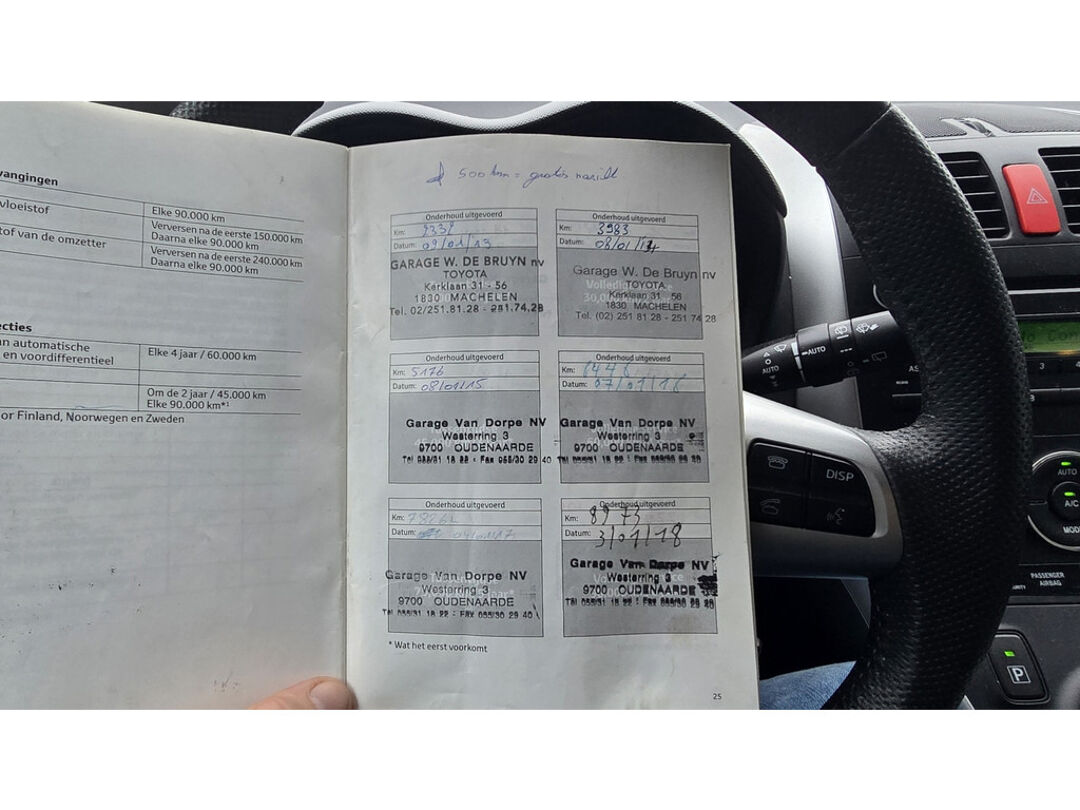 vangingen
vloeistof
Elke 90.000 km
Verversen na de eerste 150.000 km
Daarna elke 90.000 km
tof van de omzetter
Verversen na de eerste 240.000 km
Daarna elke 90.000 km
ecties
an automatische
en voordifferentieel
Elke 4 jaar / 60.000 km
Om de 2 jaar / 45.000 km
Elke 90.000 km*¹
or Finland, Noorwegen en Zweden
500 km = gratis
Onderhoud uitgevoerd
Km:
Datum: 09/01/13
GARAGE W. DE BRUYN nv
TOYOTA
Kerklaan 31 - 56
1830 MACHELEN
Tel. 02/251.81.28 - 251.74.28
Onderhoud uitgevoerd
Km: 3983
Datum: 08/01/14
Garage W. De Bruyn nv
TOYOTA
Kerklaan 31 - 56
1830 MACHELEN
Tel. (02) 251 81 28 - 251 74 28
Onderhoud uitgevoerd
Km: 5176
Datum: 08/01/15
Garage Van Dorpe NV
Westerring 3
9700 OUDENAARDE
Tel 055/31 18 22 - Fax 055/30 29 40
Onderhoud uitgevoerd
Km: 6446
Datum: 07/01/16
Garage Van Dorpe NV
Westerring 3
9700 OUDENAARDE
Onderhoud uitgevoerd
Km:
Datum:
Garage Van Dorpe NV
Westerring 3
9700 OUDENAARDE
Tel 055/31 18 22 - Fax 055/30 29 40
Onderhoud uitgevoerd
Km: 8973
Datum: 3/01/18
Garage Van Dorpe NV
Westerring 3
9700 OUDENAARDE
* Wat het eerst voorkomt
25
AUTO
AUTO
DISP
3
4
AUTO
A/C
MODE
PASSENGER
AIRBAG
P